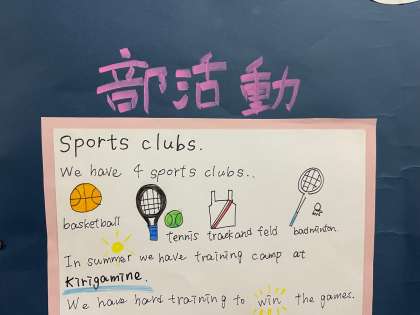 部活動
Sports clubs.
We have 4 sports clubs..
basketball
tennis
track and feld
badminton.
In summer we have training camp at
Kirigamine.
We have hard training to win the games.